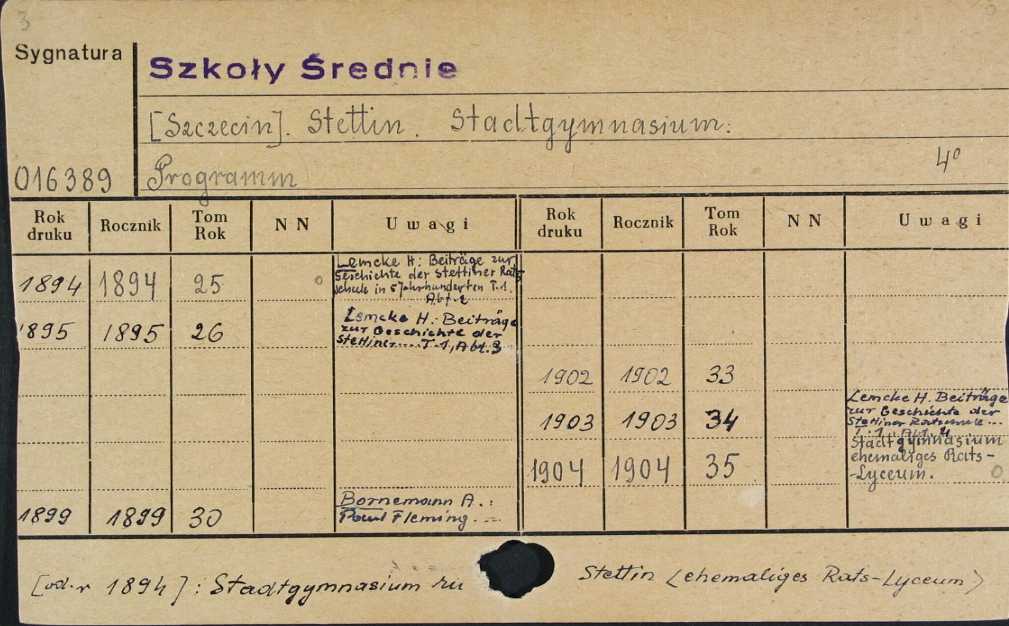 3
Sygnatura
Szkoły Średnie
[Szczecin]. Stettin. Stadtgymnasium:
4°
016389
Programm
Rok druku Rocznik Tom Rok NN Uwagi Rok druku Rocznik Tom Rok NN Uwagi
1894 1894 25
Lemcke H: Beiträge zur
Geschichte der Stettiner Rats
schule in 5 Jahrhunderten T.1.
Abt. 2
1895 1895 26
Lemcke H.: Beiträge
zur Geschichte der
Stettiner.... T.1, Abt. 3
1899 1899 30
Bornemann A.:
Paul Fleming. ...
1902 1902 33
1903 1903 34
Lemcke H. Beiträge
zur Geschichte der
Stettiner Ratsschule...
T.1. Abt. 4
1904 1904 35
Stadtgymnasium
ehemaliges Rats-
-Lyceum.
[od r 1894]: Stadtgymnasium zu Stettin (ehemaliges Rats-Lyceum)